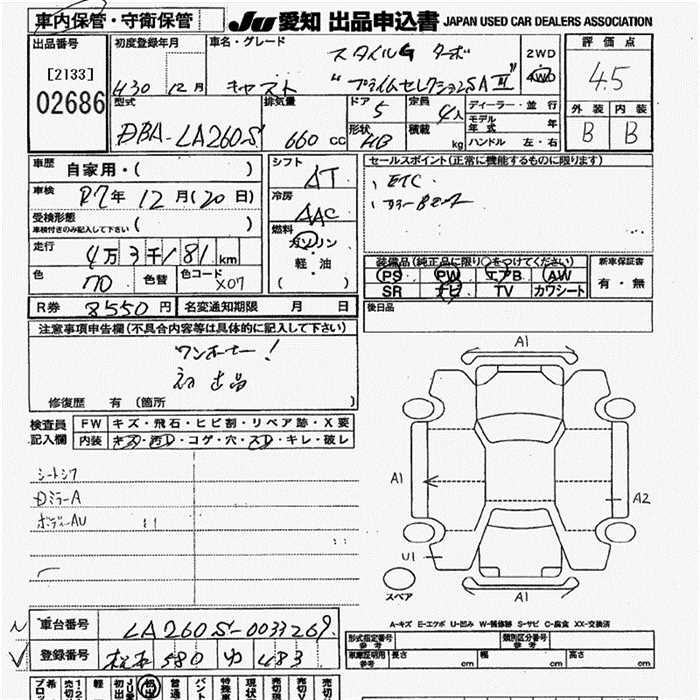 車内保管・守衛保管 JU 愛知 出品申込書 JAPAN USED CAR DEALERS ASSOCIATION
出品番号 初度登録年月 車名・グレード スタイルG ターボ 2WD 評価点
[2133] H30 12月 キャスト "プライムセレクションSAⅢ" 4WD 4.5
02686 型式 排気量 ドア 5 定員 4人 ディーラー・並行 外装 内装
DBA-LA260S 660 CC 形状 HB 積載 kg モデル年式 年 B B
ハンドル 左・右
車歴 自家用・( ) シフト AT セールスポイント(正常に機能するものに限ります)
車検 R7年 12月(20日) 冷房 AAC ETC
受検形態 車検付きのみ記入して下さい ( ) 燃料
走行 4万3千181km ガソリン 装備品(純正品に限り○をつけてください) 新車保証書
色 70 色替 色コード X07 軽・油 ( ) PS PW エアB AW 有・無
SR ナビ TV カワシート
R券 8550円 名変通知期限 月 日 後日品
注意事項申告欄(不具合内容等は具体的に記入して下さい)
ワンオーナー!
初出品
修復歴 有 (箇所 )
検査員記入欄 FW キズ・飛石・ヒビ割・リペア跡・X要
内装 キズ・汚レ・コゲ・穴・スレ・キレ・破レ
シートシワ
DミラーA
ボディーAU
A1
A1 A2
U1
スペア A1
A-キズ E-エクボ U-凹み W-補修跡 S-サビ C-腐食 XX-交換済
車台番号 LA260S-0033269 形式指定番号 参考 類別区分番号 参考
登録番号 松本 580 ゆ 483 車庫証明用 参考 長さ cm 幅 cm 高さ cm